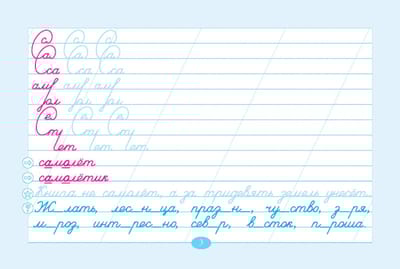 са са са
ет ет ет
самолёт
самолётик
Книга не самолёт, а за тридевять земель унесёт.
Ж_лать, лес_н_ца, праз_н_, чу_ство, з_ря,
м_роз, инт_рес_но, сев_р, в_сток, п_роша.